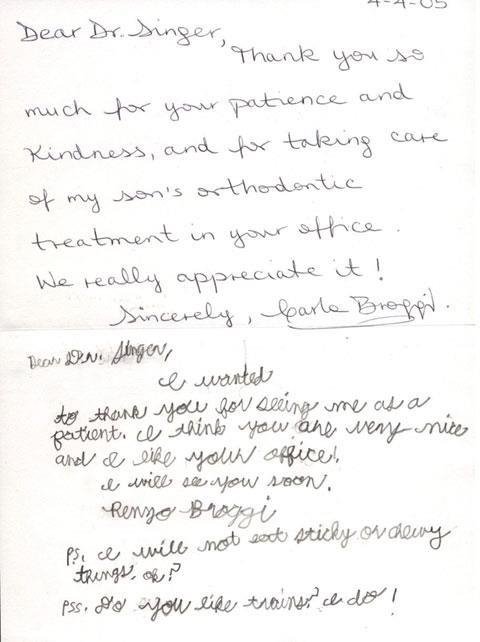 4-4-05
Dear Dr. Singer,
Thank you so
much for your patience and
Kindness, and for taking care
of my son's orthodontic
treatment in your office.
We really appreciate it!
Sincerely, Carla Broggi.
Dear Dr. Singer,
I wanted
to thank you for seeing me as a
patient. I think you are very nice
and I like your office!
I will see you soon.
Renzo Broggi
PS. I will not eat sticky or chewy
things. ok?
PSS. Do you like trains? I do!